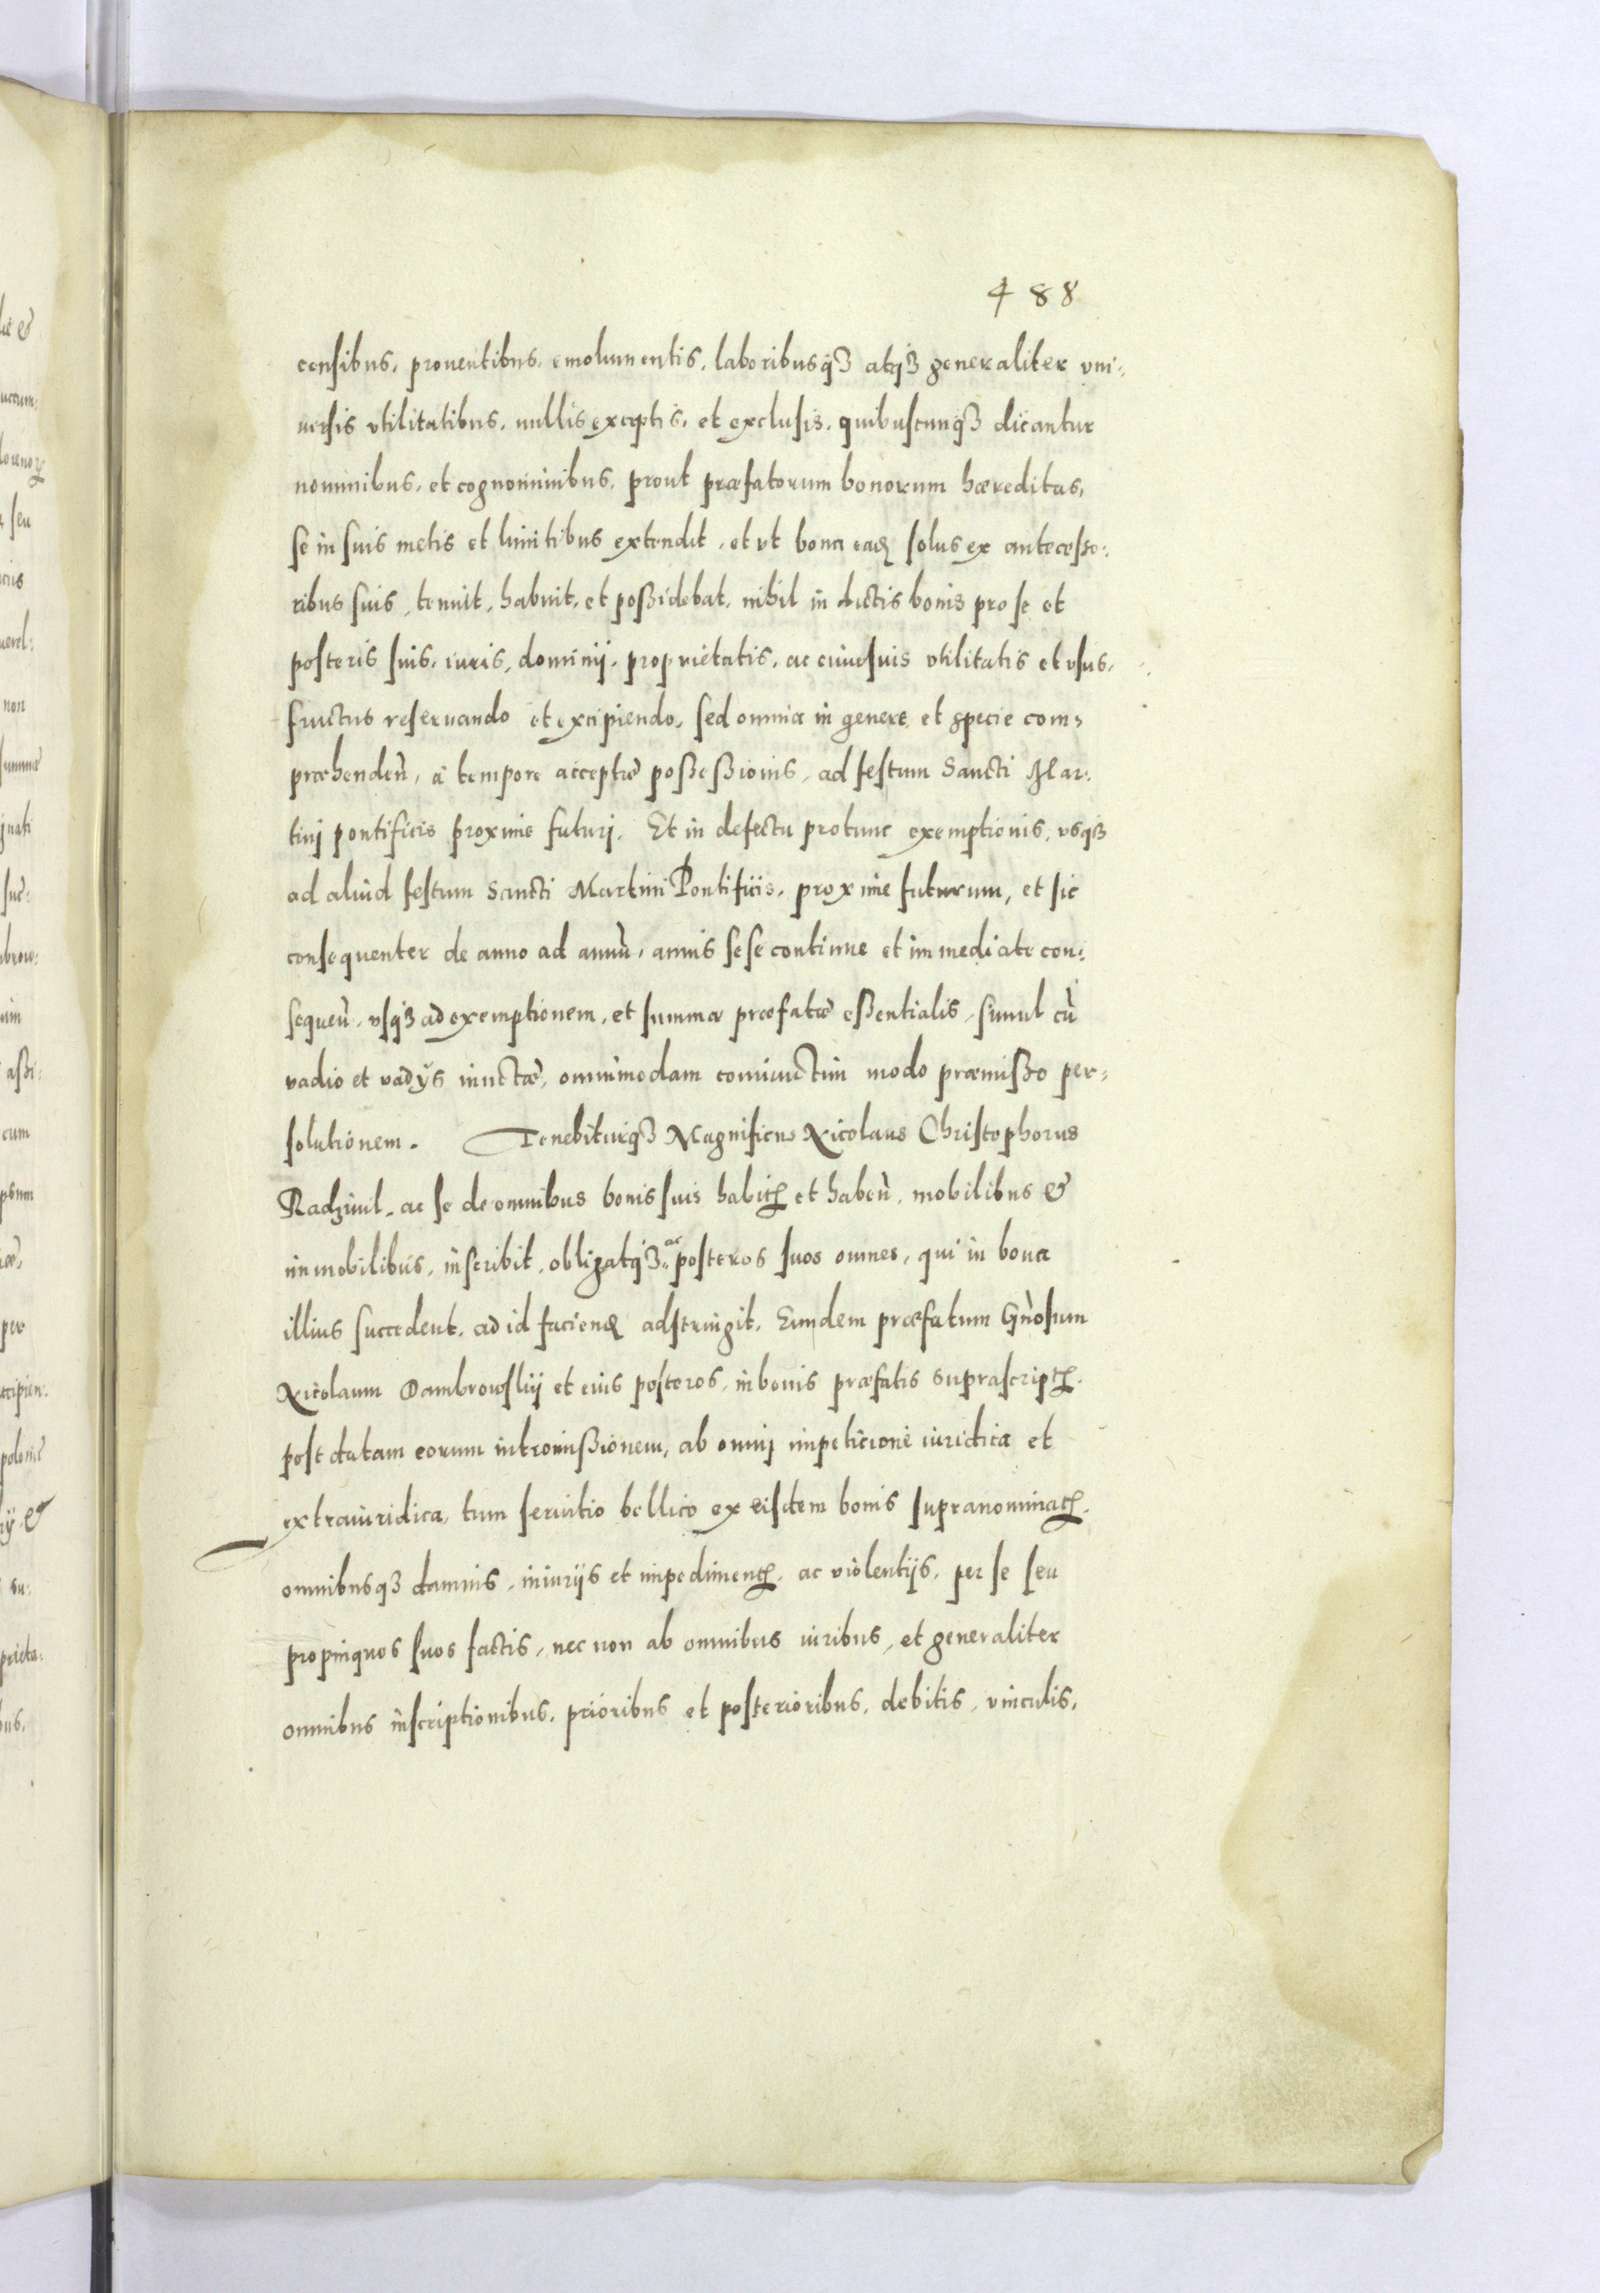 488
censibus, prouentibus, emolumentis, laboribusq₃ atq₃ generaliter vni-
uersis vtilitatibus, nullis exceptis, et exclusis, quibuscunq₃ dicantur
nominibus, et cognominibus, prout præfatorum bonorum hæreditas,
se in suis metis et limitibus extendit, et vt bona eadꝫ solus ex antecesso-
ribus suis, tenuit, habuit, et possidebat, nihil in dictis bonis pro se et
posteris suis, iuris, dominij, proprietatis, ac cuiusuis vtilitatis et vsus-
fructus reseruando et excipiendo, sed omnia in genere et specie com-
præhendeñ, à tempore acceptæ possessionis, ad festum Sancti Mar-
tini pontificis proxime futuri. Et in defectu protunc exemptionis, vsq₃
ad aliud festum Sancti Martini Pontificis, proxime futurum, et sic
consequenter de anno ad annũ, annis sese continue et immediate con-
sequeñ, vsq₃ ad exemptionem, et summæ præfatæ essentialis, simul cũ
vadio et vadijs iunctæ, omnimodam coniunctim modo præmisso per-
solutionem. Tenebiturq₃ Magnificus Nicolaus Christophorus
Radziuil, ac se de omnibus bonis suis habitꝭ et habeñ, mobilibus &
immobilibus, inscribit, obligatq₃ ac posteros suos omnes, qui in bona
illius succedent, ad id faciendꝫ adstringit, Eundem præfatum Gñosum
Nicolaum Dambrowskij et eius posteros, in bonis præfatis suprascriptꝭ.
post datam eorum intromissionem, ab omnj impeticione iuridica et
extraiuridica, tum seruitio bellico ex eisdem bonis supranominatꝭ.
omnibusq₃ damnis, iniurijs et impedimentꝭ, ac violentijs, per se seu
propinquos suos factis, nec non ab omnibus iuribus, et generaliter
omnibus inscriptionibus, prioribus et posterioribus, debitis, vinculis,